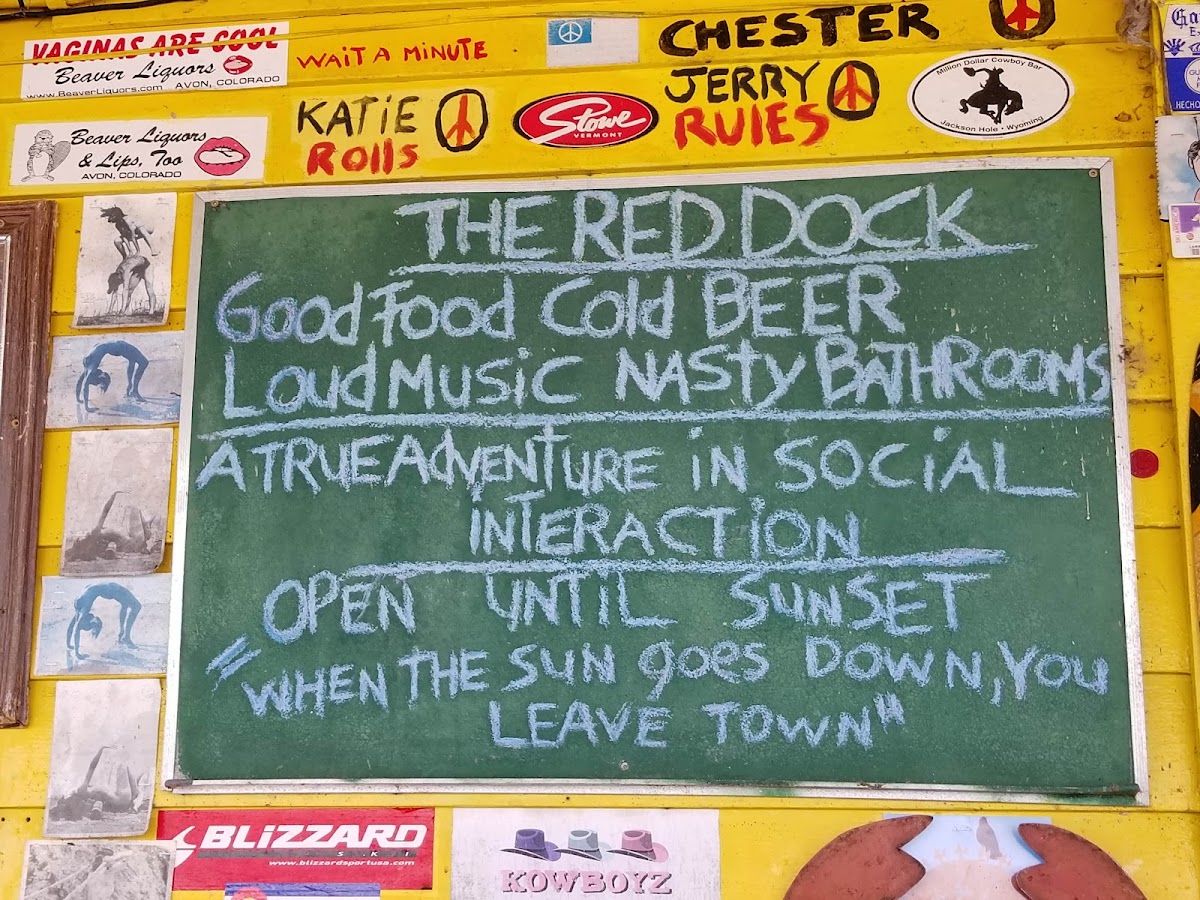 VAGINAS ARE COOL
Beaver Liquors
www.BeaverLiquors.com AVON, COLORADO
WAIT A MINUTE
CHESTER
Beaver Liquors
& Lips, Too
AVON, COLORADO
KATiE
Rolls
Stowe
VERMONT
JERRY
RULES
Million Dollar Cowboy Bar
Jackson Hole • Wyoming
HECHO
THE RED DOCK
Good Food Cold BEER
Loud Music NASty BATHROOMS
A TRUE AdVENTURE iN SOCiAL
iNTERACTiON
OPEN UNTiL SUNSET
"WHEN THE SUN goes DOWN, YOU
LEAVE TOWN"
BLiZZARD
SKI
www.blizzardsportusa.com
KOWBOYZ